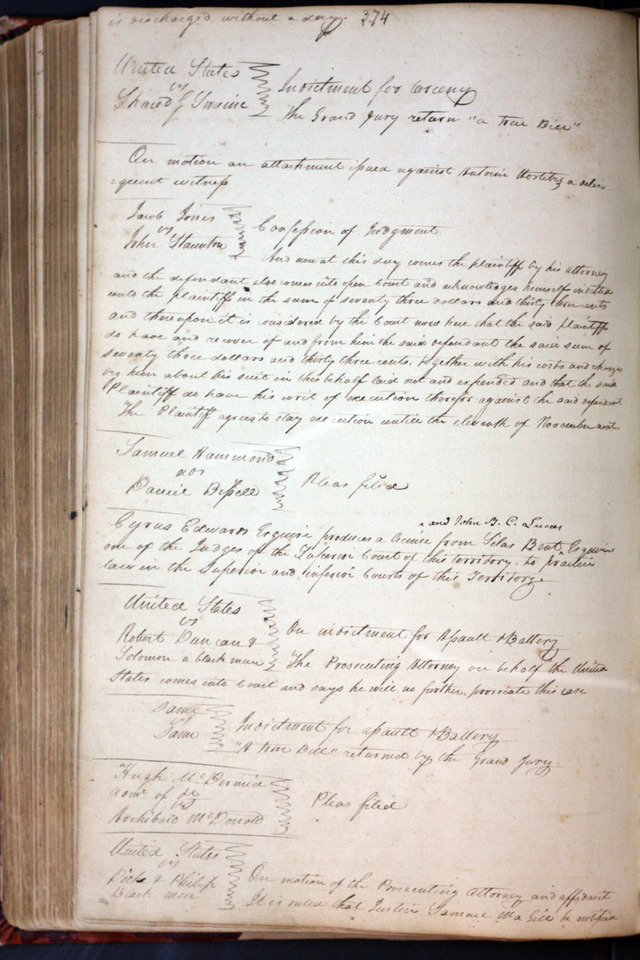 is discharged without a day. 374
United States
vs
Indictment for larceny
The Grand Jury return "a true Bill"
On motion an attachment issued against Antoine a delin
=quent witness
Jacob Jones
vs
John Staunton
Confession of Judgment
And now at this day comes the plaintiff by his attorney
and the defendant also comes into open Court and acknowledges himself indebted
unto the plaintiff in the sum of seventy three dollars and thirty three cents
and thereupon it is considered by the Court now here that the said plaintiff
do have and recover of and from him the said defendant the said sum of
seventy three dollars and thirty three cents, together with his costs and charges
by him about his suit in this behalf laid out and expended and that the said
Plaintiff do have his writ of execution therefor against the said defendant
The Plaintiff agrees to stay execution untill the eleventh of November next
Samuel Hammond
Daniel Bissell
Pleas filed
and John B. C. Lucas
Cyrus Edwards Esquire produces a license from Silas Bent, Esquire
one of the Judges of the Superior Court of this territory. to practice
law in the Superior and inferior Courts of this Territory.
United States
vs
Robert Duncan &
Solomon a black man
On indictment for Assault & Battery
The Prosecuting Attorney on behalf the United
States comes into Court and says he will no further prosecute this case
Same
vs
Same
Indictment for assault & Battery
"A true Bill" returned by the Grand Jury.
Hugh McDermid
admr of &c
vs
Archibald McDonald
Pleas filed
United States
vs
Dick & Philip
Black men
On motion of the Prosecuting Attorney and affidavit
It is ruled that Justice be notified